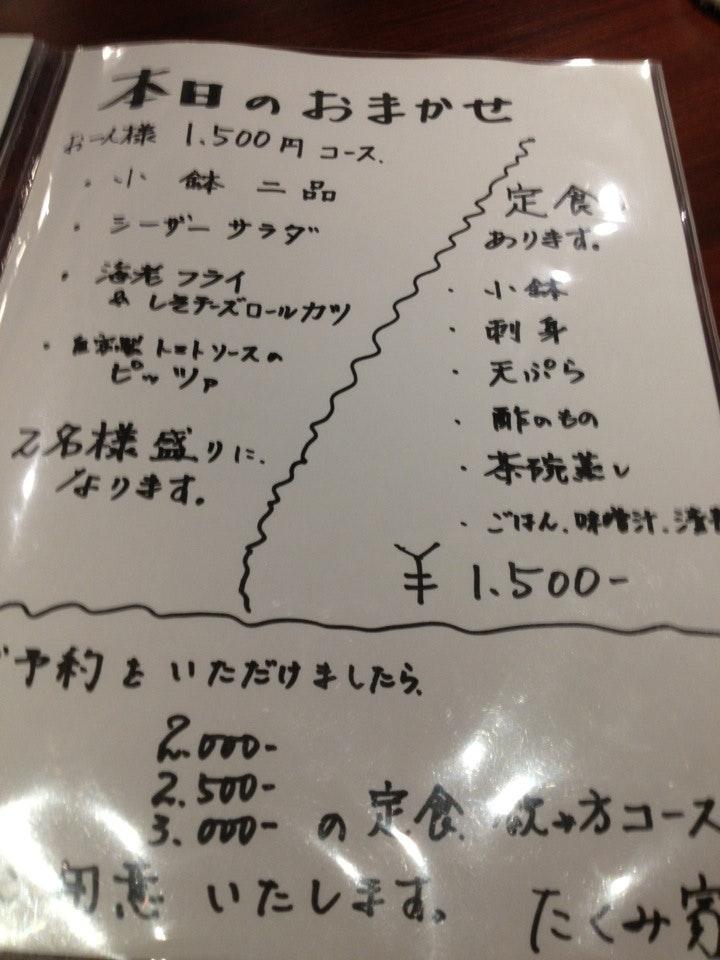 本日のおまかせ
お一人様 1.500円 コース.
・小鉢 二品
・シーザー サラダ
・海老 フライ
& しそチーズロールカツ
・自家製 トマトソースの
ピッツァ
2名様盛りに.
なります。
定食
あります。
・小鉢
・刺身
・天ぷら
・酢のもの
・茶碗蒸し
・ごはん、味噌汁、漬物
¥1.500-
ご予約をいただけましたら、
2.000-
2.500-
3.000- の定食、飲み方コース
用意いたします。
たくみ家